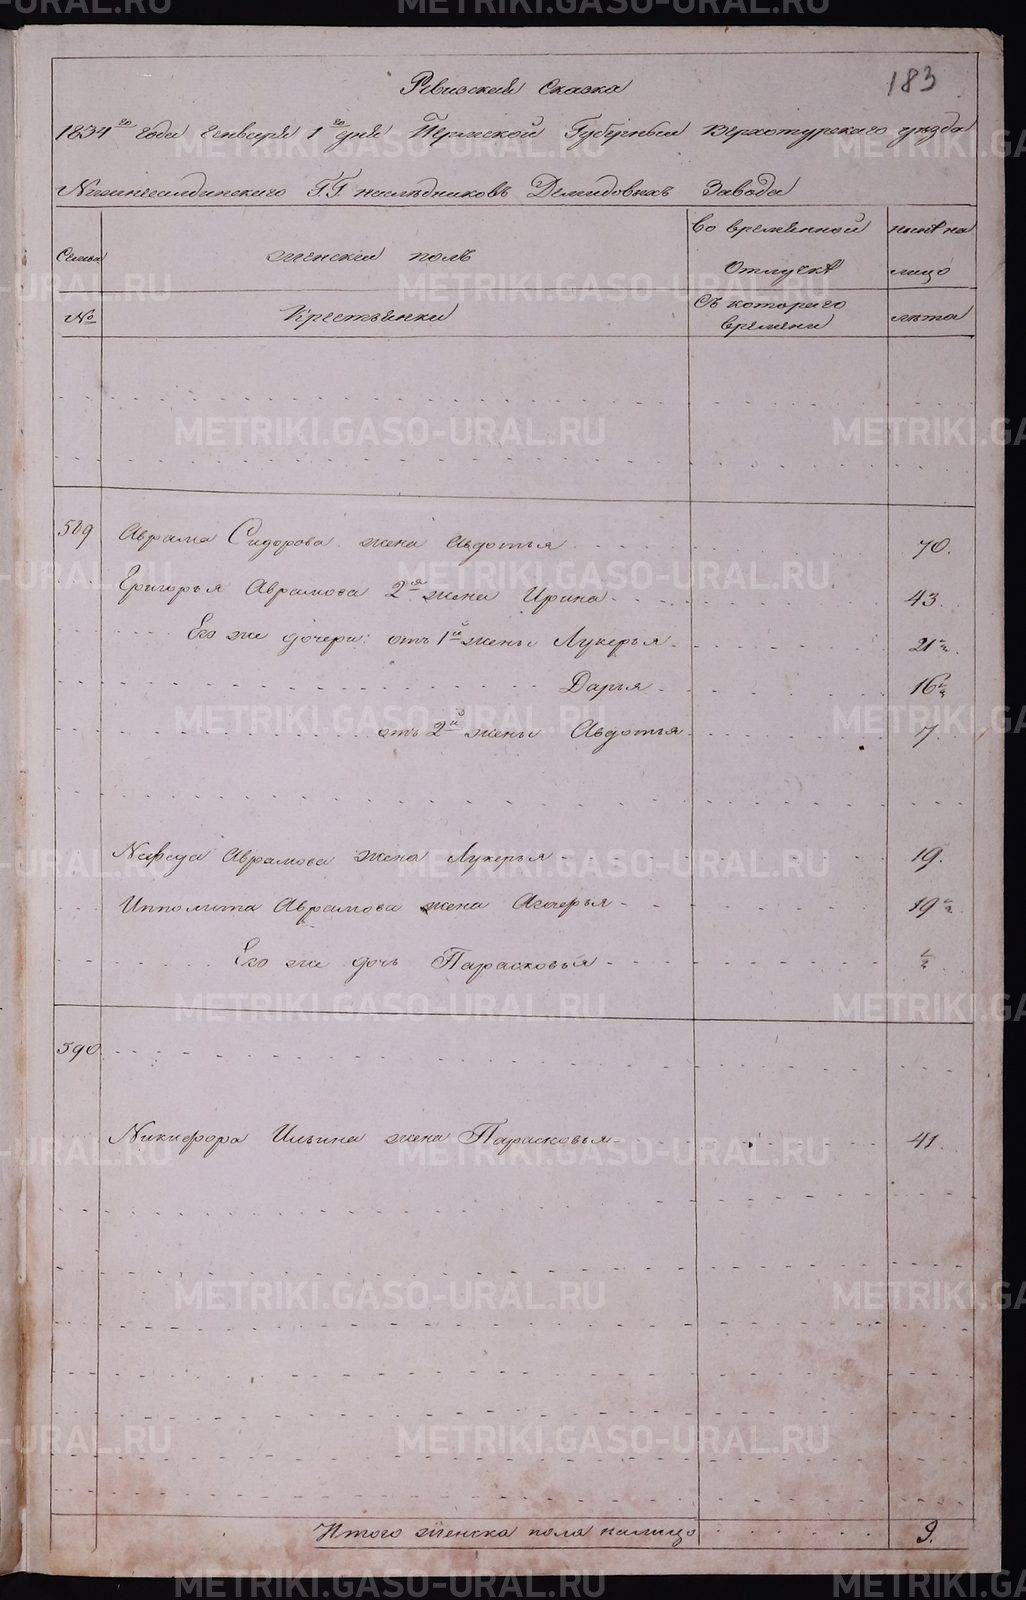 183
Ревизская Сказка
1834го года Генваря 1го дня Пермской Губернии Верхотурскаго уезда
Нижнесалдинскаго ГГ наследниковъ Демидовыхъ Завода
Семьи
женскій полъ
Во временной отлучкѣ
ныне на лицо
№
Крестьянки
Съ котораго времени
лѣта
589 Аврама Сидорова жена Авдотья 70.
Григорья Аврамова 2я жена Ирина 43.
Его же дочери: отъ 1й жены Лукерья 21 1/2.
Дарья 16 1/2
отъ 2й жены Авдотья 7.
Нефеда Аврамова жена Лукерья 19.
Ипполита Аврамова жена 19 1/2
Его же дочь Парасковья 1/2
590
Никифора Ильина жена Парасковья 41.
Итого женска пола налицо 9.
METRIKI.GASO-URAL.RU